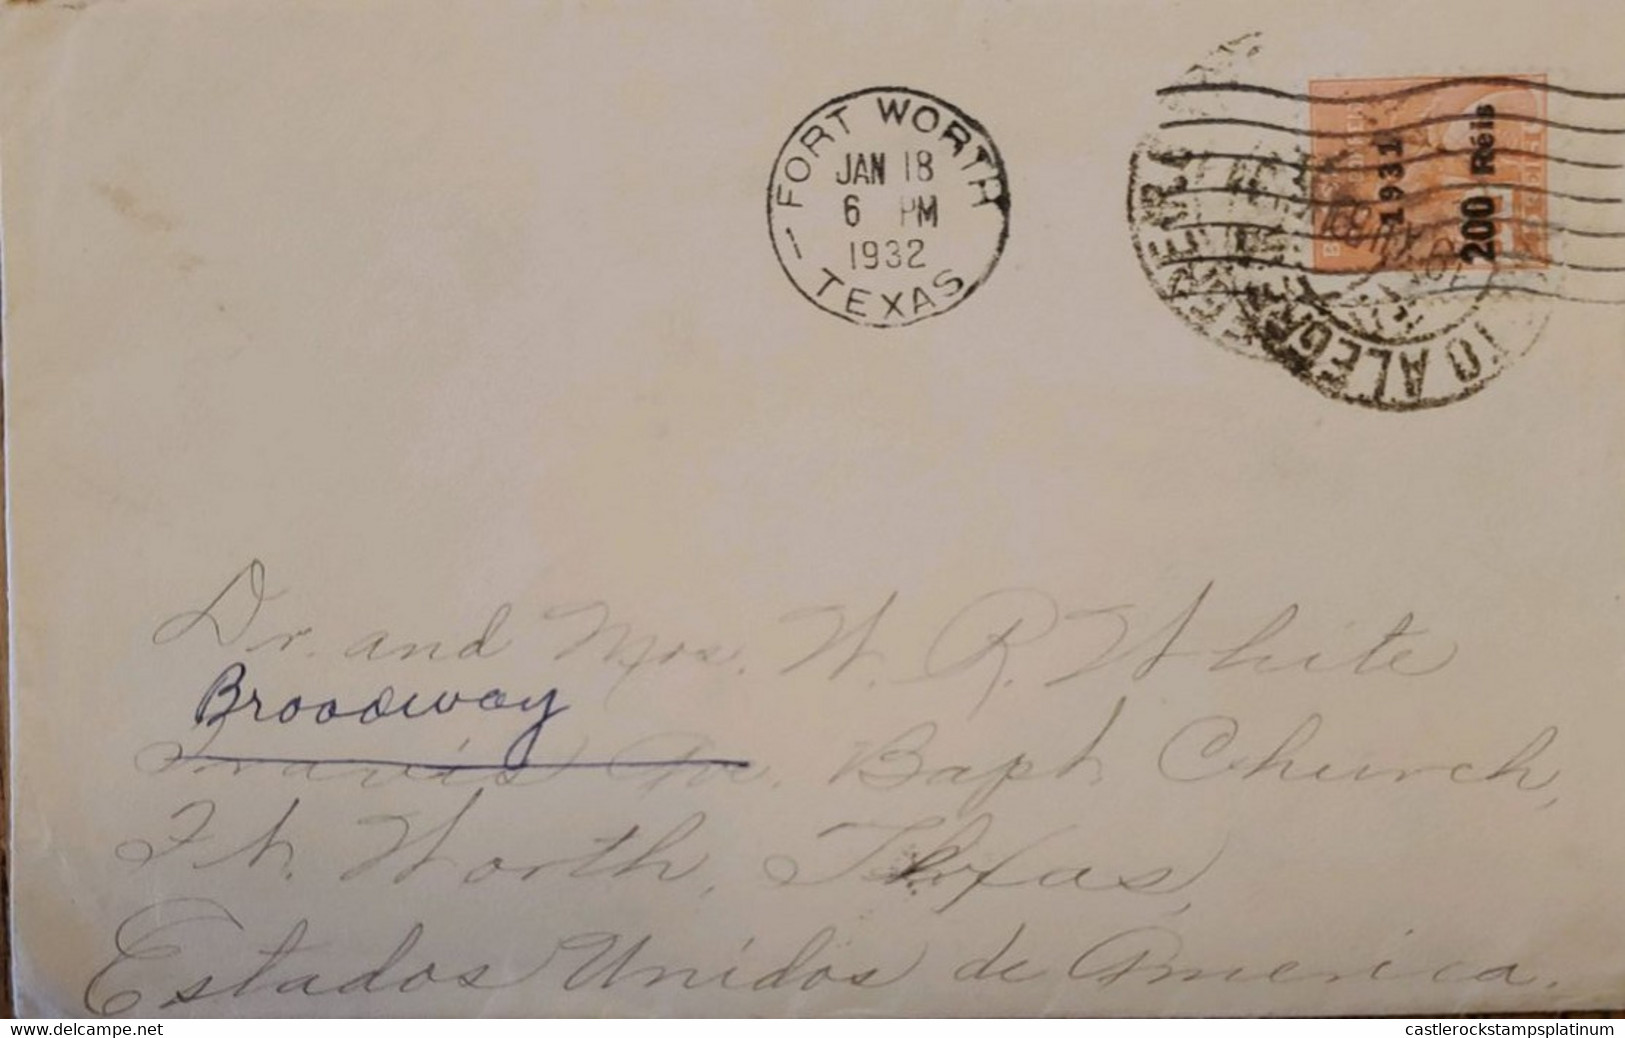 FORT WORTH
JAN 18
6 PM
1932
TEXAS
1931
200 Réis
TO ALEGR
Dr. and Mrs. W. R. White
Broadway
Travis Ave. Bapt. Church,
Ft. Worth, Texas,
Estados Unidos de America.
www.delcampe.net
castlerockstampsplatinum